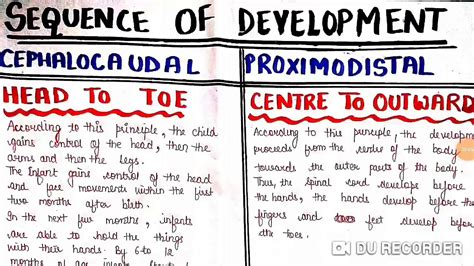 SEQUENCE OF DEVELOPMENT
CEPHALOCAUDAL
HEAD TO TOE
According to this principle, the child
gains control of the head, then the
arms and then the legs.
The Infant gains control of the head
and face movements within the first
two months after birth.
In the next few months, infants
are able to hold the things
with their hands. By 6 to 12
months of age infants
PROXIMODISTAL
CENTRE TO OUTWARD
According to this principle, the developm
proceeds from the of the body
towards the outer parts of the body.
Thus, the spinal cord develops before
the hands, the hands develop before the
fingers and feet develop before
the toes.
DU RECORDER